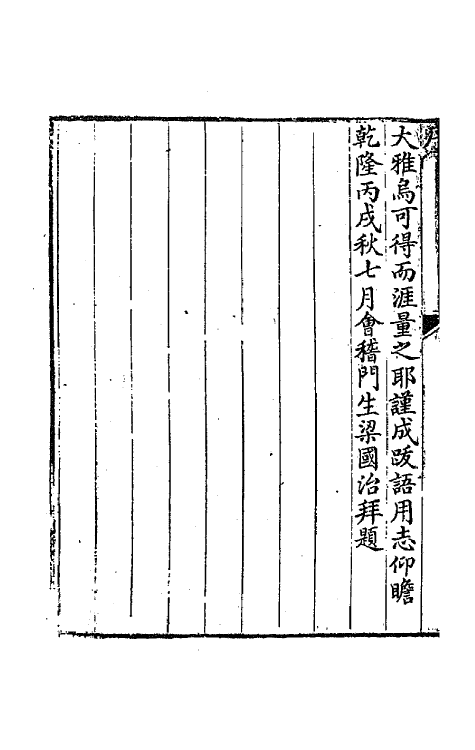 大雅烏可得而涯量之耶謹成跋語用志仰瞻
乾隆丙戌秋七月會稽門生梁國治拜題